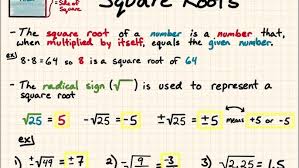 Square Roots
= Side of Square
- The square root of a number is a number that, when multiplied by itself, equals the given number.
ex) 8·8 = 64 so 8 is a square root of 64
- The radical sign (√) is used to represent a square root
√25 = 5 -√25 = -5 ±√25 = ±5 means +5 or -5
ex)
1) ±√49 = ±7 2) -√9 = -3 3) √2.25 = 1.5